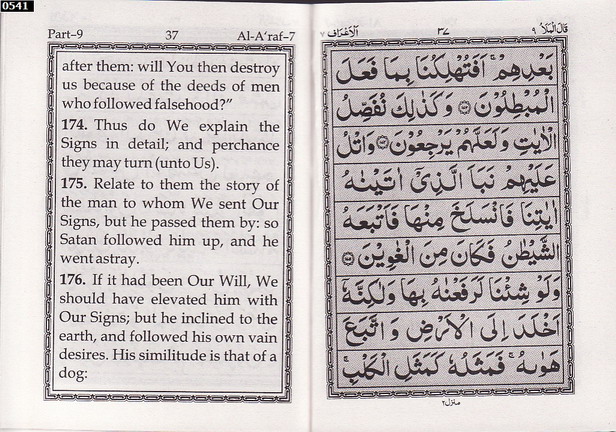 0541
Part–9 37 Al-A'raf–7
after them: will You then destroy
us because of the deeds of men
who followed falsehood?"
174. Thus do We explain the
Signs in detail; and perchance
they may turn (unto Us).
175. Relate to them the story of
the man to whom We sent Our
Signs, but he passed them by: so
Satan followed him up, and he
went astray.
176. If it had been Our Will, We
should have elevated him with
Our Signs; but he inclined to the
earth, and followed his own vain
desires. His similitude is that of a
dog:
قَالَ الْمَلَأُ ٩ ٣٧ اَلْاَعْرَاف ٧
بَعْدِهِمْ ۚ اَفَتُهْلِكُنَا بِمَا فَعَلَ
الْمُبْطِلُوْنَ ۝ وَكَذٰلِكَ نُفَصِّلُ
الْاٰيٰتِ وَلَعَلَّهُمْ يَرْجِعُوْنَ ۝ وَاتْلُ
عَلَيْهِمْ نَبَاَ الَّذِىْٓ اٰتَيْنٰهُ
اٰيٰتِنَا فَانْسَلَخَ مِنْهَا فَاَتْبَعَهُ
الشَّيْطٰنُ فَكَانَ مِنَ الْغٰوِيْنَ ۝
وَلَوْ شِئْنَا لَرَفَعْنٰهُ بِهَا وَلٰكِنَّهٗٓ
اَخْلَدَ اِلَى الْاَرْضِ وَاتَّبَعَ
هَوٰىهُ ۚ فَمَثَلُهٗ كَمَثَلِ الْكَلْبِ ۚ
منزل ٢